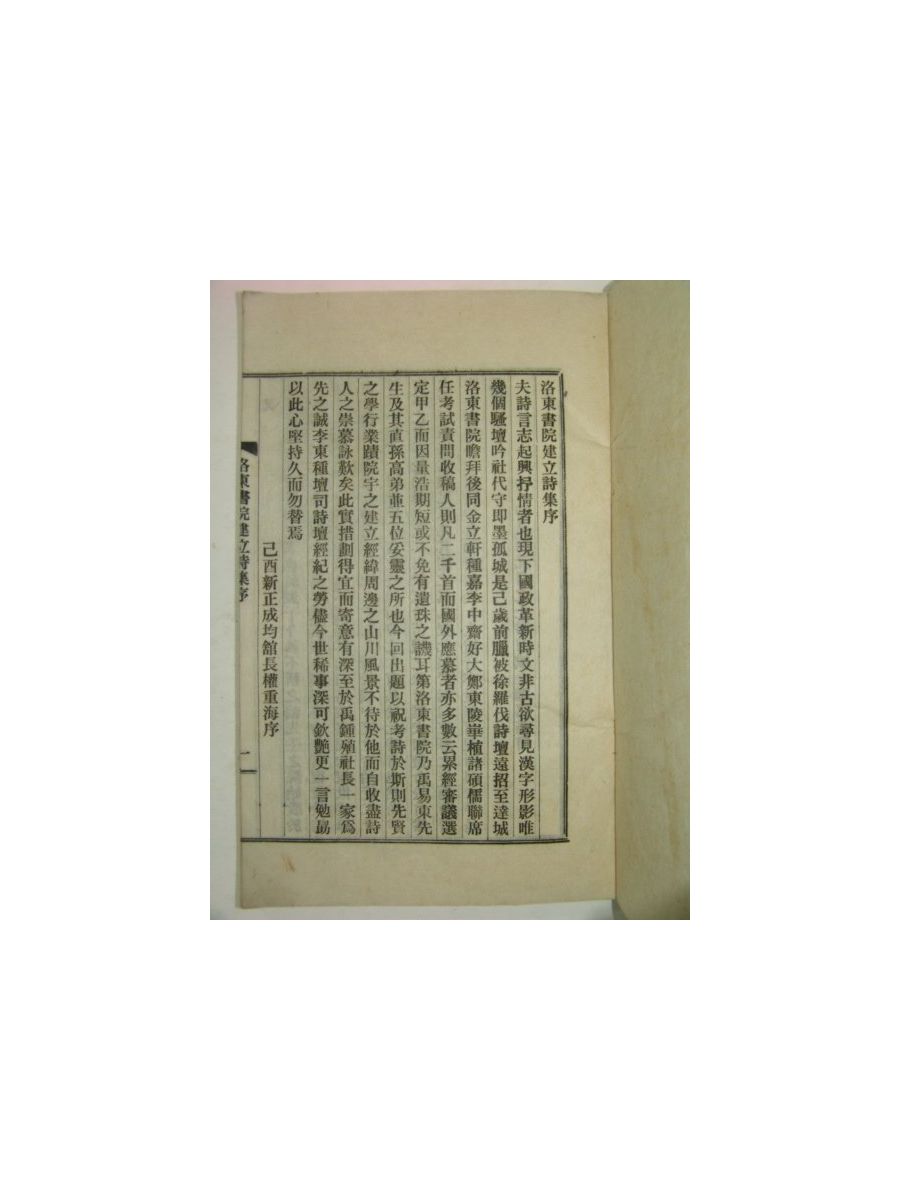 洛東書院建立詩集序
夫詩言志起興抒情者也現下國政革新時文非古欲尋見漢字形影唯
幾個騷壇吟社代守即墨孤城是己歲前臘被徐羅伐詩壇遠招至達城
洛東書院瞻拜後同金立軒種嘉李中齋好大鄭東陵崋植諸碩儒聯席
任考試責問收稿人則凡二千首而國外應慕者亦多數云累經審議選
定甲乙而因量浩期短或不免有遺珠之譏耳第洛東書院乃禹易東先
生及其直孫高弟並五位妥靈之所也今回出題以祝考詩於斯則先賢
之學行業蹟院宇之建立經緯周邊之山川風景不待於他而自收盡詩
人之崇慕詠歎矣此實措劃得宜而寄意有深至於禹鍾殖社長一家爲
先之誠李東種壇司詩壇經紀之勞儘今世稀事深可欽艶更一言勉勗
以此心堅持久而勿替焉
己酉新正成均舘長權重海序
洛東書院建立詩集序
一